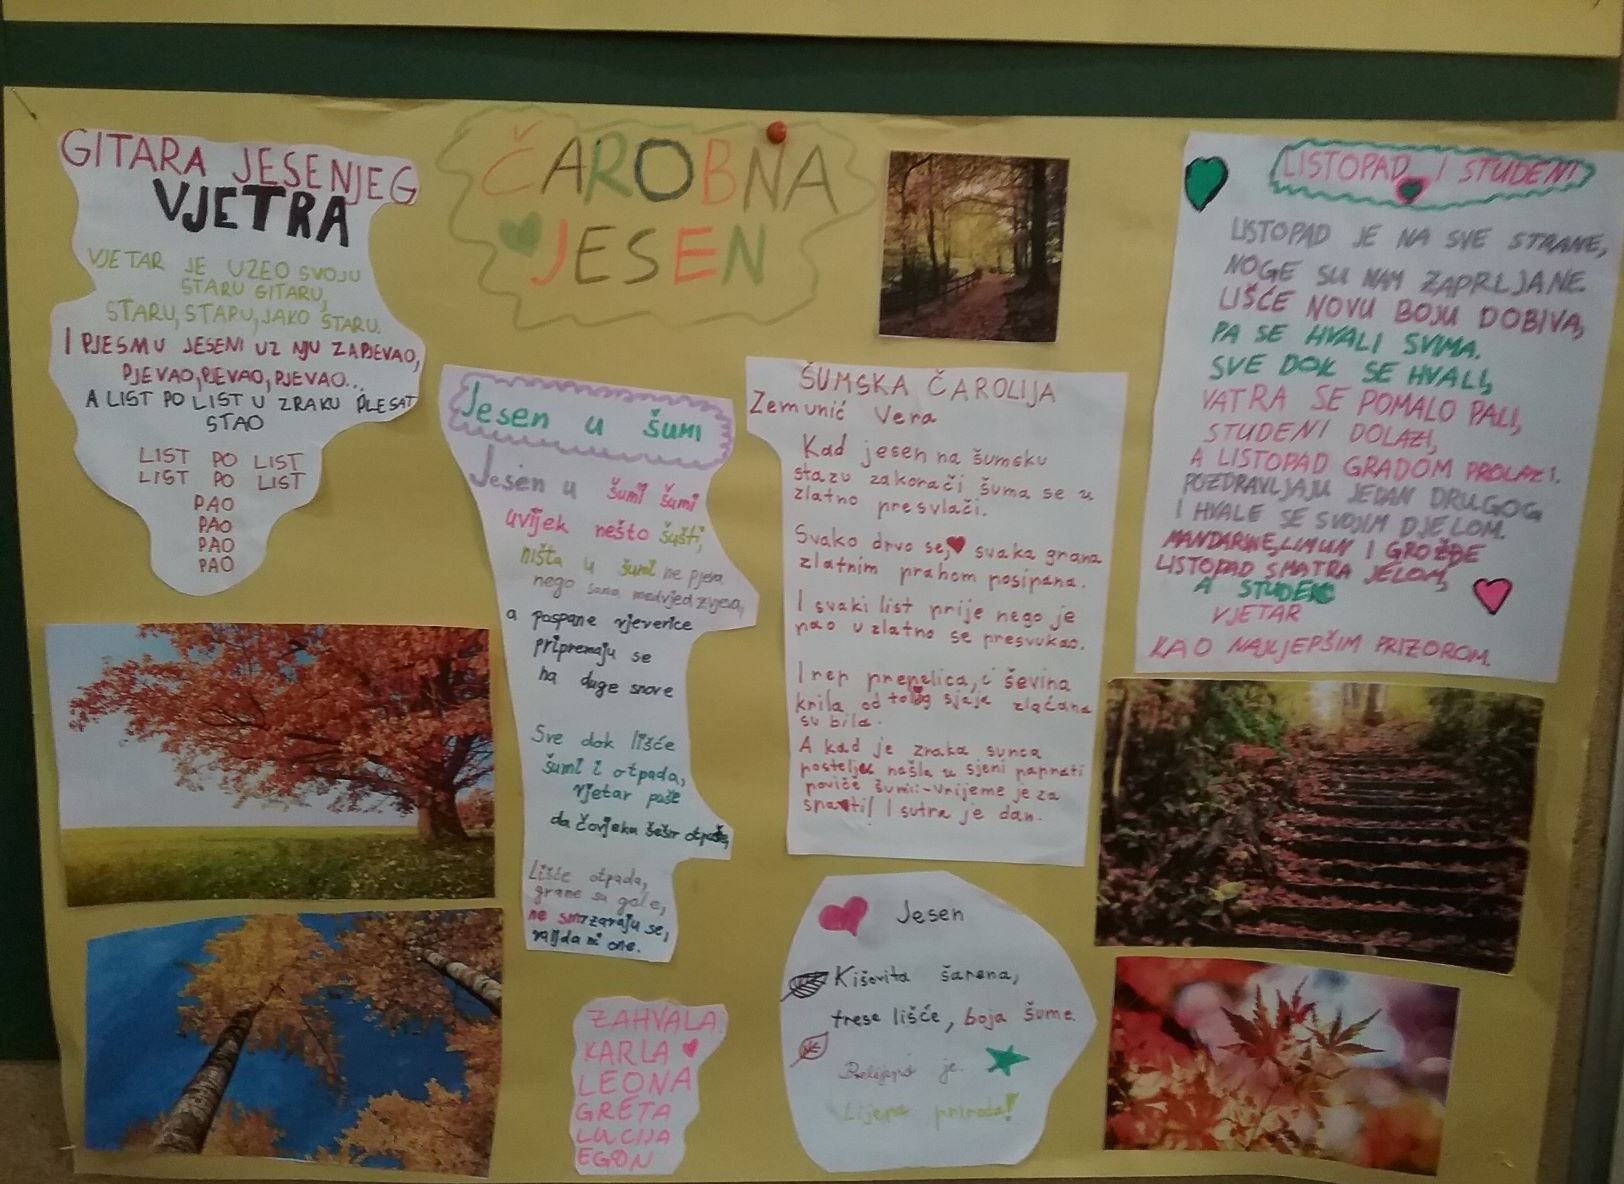 ČAROBNA
JESEN
GITARA JESENJEG
VJETRA
VJETAR JE UZEO SVOJU
STARU GITARU,
STARU, STARU, JAKO STARU.
I PJESMU JESENI UZ NJU ZAPJEVAO,
PJEVAO, PJEVAO, PJEVAO...
A LIST PO LIST U ZRAKU PLESAT
STAO
LIST PO LIST
LIST PO LIST
PAO
PAO
PAO
PAO
Jesen u šumi
Jesen u šumi šumi
uvijek nešto šušti,
ništa u šumi ne pjeva
nego samo medvjed zijeva,
a pospane vjeverice
pripremaju se
na duge snove
Sve dok lišće
šumi i otpada,
vjetar puše
da čovjeku šešir otpuše,
Lišće otpada,
grane su gole,
ne smrzavaju se,
valjda ni one.
ZAHVALA
KARLA
LEONA
GRETA
LUCIJA
EGON
ŠUMSKA ČAROLIJA
Zemunić Vera
Kad jesen na šumsku
stazu zakorači šuma se u
zlatno presvlači.
Svako drvo se, svaka grana
zlatnim prahom posipana.
I svaki list prije nego je
pao u zlatno se presvukao.
I rep prepelica, i ševina
krila od tolog sjaja zlaćana
su bila.
A kad je zraka sunca
postelju našla u sjeni paprati
poviče šumi:-Vrijeme je za
spavti! I sutra je dan.
Jesen
Kišovita šarena,
trese lišće, boja šume.
je
Lijepa priroda!
LISTOPAD I STUDENI
LISTOPAD JE NA SVE STRANE,
NOGE SU NAM ZAPRLJANE.
LIŠĆE NOVU BOJU DOBIVA,
PA SE HVALI SVIMA.
SVE DOK SE HVALI,
VATRA SE POMALO PALI,
STUDENI DOLAZI,
A LISTOPAD GRADOM PROLAZI.
POZDRAVLJAJU JEDAN DRUGOG
I HVALE SE SVOJIM DJELOM.
MANDARINE, LIMUN I GROŽĐE
LISTOPAD SMATRA JELOM,
A
VJETAR
KAO NAJLJEPŠIM PRIZOROM.